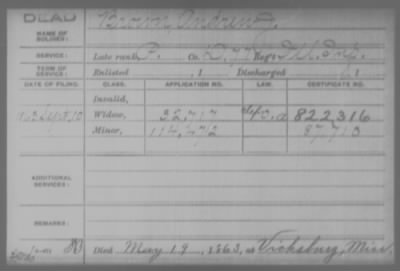 DEAD
NAME OF SOLDIER: Brown, Andrew J.
SERVICE: Late rank P. Co. D, 77 Reg't Ill. Inf.
TERM OF SERVICE: Enlisted , 1 Discharged , 1
DATE OF FILING. CLASS. APPLICATION NO. LAW. CERTIFICATE NO.
Invalid,
Widow, 32,717 822,316
Minor, 114,472 87,713
ADDITIONAL SERVICES:
REMARKS:
Died May 19, 1863, at Vicksburg, Miss